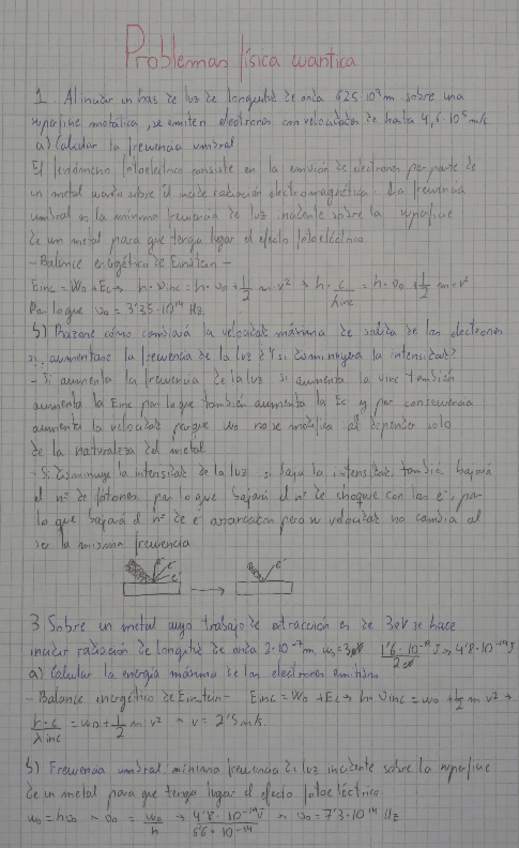 Problemas física cuántica
1. Al incidir un haz de luz de longitud de onda 625·10⁻⁹m sobre una
superficie metálica, se emiten electrones con velocidades de hasta 4,6·10⁵ m/s
a) Calcular la frecuencia umbral
El fenómeno fotoeléctrico consiste en la emisión de electrones por parte de
un metal cuando sobre él incide radiación electromagnética. La frecuencia
umbral es la mínima frecuencia de luz incidente sobre la superficie
de un metal para que tenga lugar el efecto fotoeléctrico.
- Balance energético de Einstein -
Einc = W0 + Ec → h·νinc = h·ν0 + 1/2 m·v² → h · c/λinc = h·ν0 + 1/2 m·v²
Por lo que ν0 = 3'35·10¹⁴ Hz
b) Razone cómo cambiará la velocidad máxima de salida de los electrones
si aumentase la frecuencia de la luz ¿Y si disminuyera la intensidad?
- Si aumenta la frecuencia de la luz si aumenta la νinc también
aumenta la Einc por lo que también aumenta la Ec y por consecuencia
aumenta la velocidad porque W0 no se modifica al depender solo
de la naturaleza del metal.
- Si disminuye la intensidad de la luz si baja la intensidad, también bajará
el nº de fotones, por lo que bajará el nº de choque con los e⁻, por
lo que bajará el nº de e⁻ pero su velocidad no cambia al
ser la misma frecuencia
e⁻ e⁻ e⁻ → e⁻
3 Sobre un metal cuyo trabajo de extracción es de 3eV se hace
incidir radiación de longitud de onda 2·10⁻⁷m.
a) Calcular la energía máxima de los electrones emitidos
- Balance energético de Einstein - Einc = W0 + Ec → h νinc = W0 + 1/2 m v² →
h·c/λinc = W0 + 1/2 m v² → v = 2'5 m/s.
b) Frecuencia umbral: mínima frecuencia de luz incidente sobre la superficie
de un metal para que tenga lugar el efecto fotoeléctrico.
W0 = hν0 → ν0 = W0/h → → ν0 = 7'3·10¹⁴ Hz